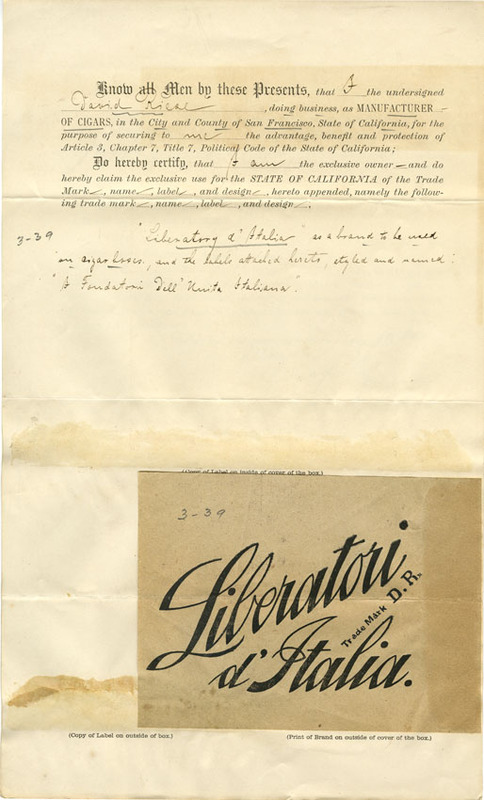 Know all Men by these Presents, that I the undersigned
David Riese, doing business, as MANUFACTURER
OF CIGARS, in the City and County of San Francisco, State of California, for the
purpose of securing to me the advantage, benefit and protection of
Article 3, Chapter 7, Title 7, Political Code of the State of California;
Do hereby certify, that I am the exclusive owner and do
hereby claim the exclusive use for the STATE OF CALIFORNIA of the Trade
Mark, name, label, and design, hereto appended, namely the follow-
ing trade mark, name, label, and design;
3-39 "Liberatory d' Italia" as a brand to be used
on cigar boxes, and the labels attached hereto, styled and named:
"I Fondatori Dell' Unita Italiana".
(Copy of Label on inside of cover of the box.)
3-39
Liberatori
d'Italia.
Trade Mark D.R.
(Copy of Label on outside of box.) (Print of Brand on outside of cover of the box.)